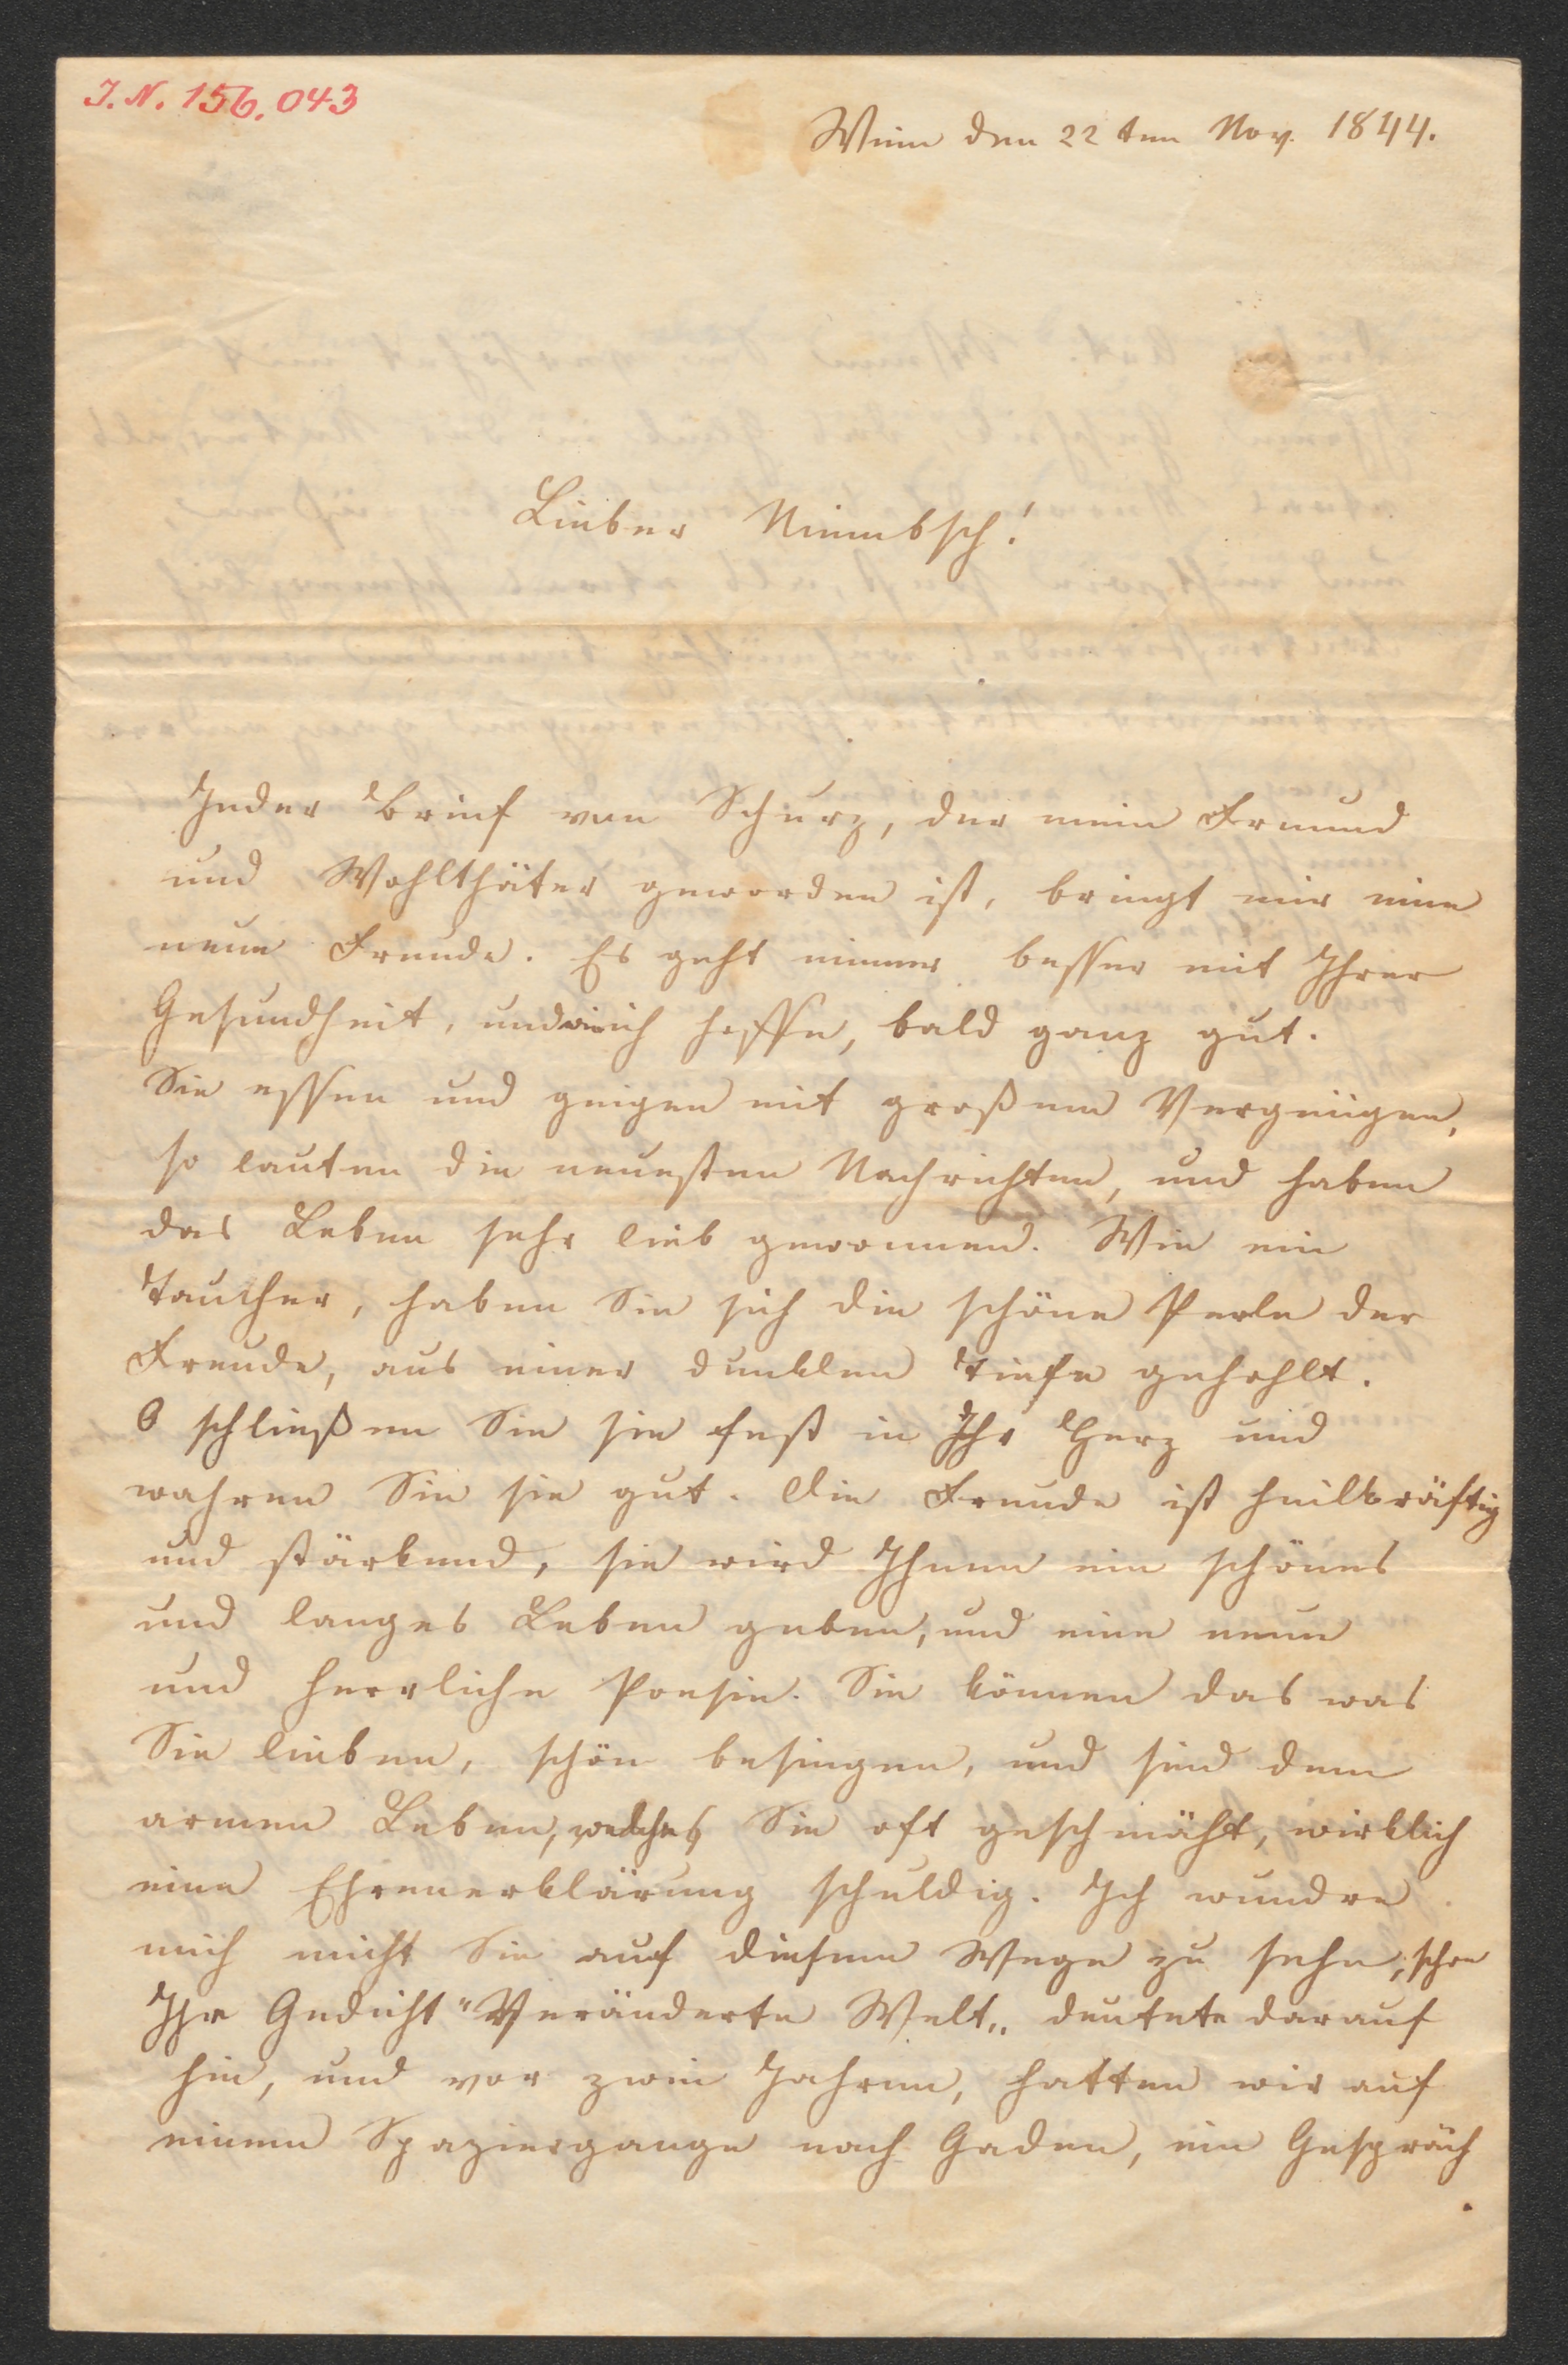 I. N. 156.043
Wien den 22 ten Nov. 1844.
Lieber Niembsch!
Jeder Brief von Schurz, der mein Freund
und Wohlthäter geworden ist, bringt mir eine
neue Freude. Es geht immer besser mit Ihrer
Gesundheit, und wie ich hoffe, bald ganz gut.
Sie essen und geigen mit großem Vergnügen,
so lauten die neuesten Nachrichten, und haben
das Leben sehr lieb gewonnen. Wie ein
Taucher, haben Sie sich die schöne Perle der
Freude, aus einer dunklen Tiefe gehohlt.
O schließen Sie sie fest in Ihr Herz und
wahren Sie sie gut. Die Freude ist heilkräftig
und stärkend, sie wird Ihnen ein schönes
und langes Leben geben, und eine neue
und herrliche Poesie. Sie können das was
Sie lieben, schön besingen, und sind dem
armen Leben, welches Sie oft geschmäht, wirklich
eine Ehrenerklärung schuldig. Ich wundre
mich nicht Sie auf diesem Wege zu sehn, schon
Ihr Gedicht "Veränderte Welt„ deutete darauf
hin, und vor zwei Jahren, hatten wir auf
einem Spaziergange nach Gaden, ein Gespräch